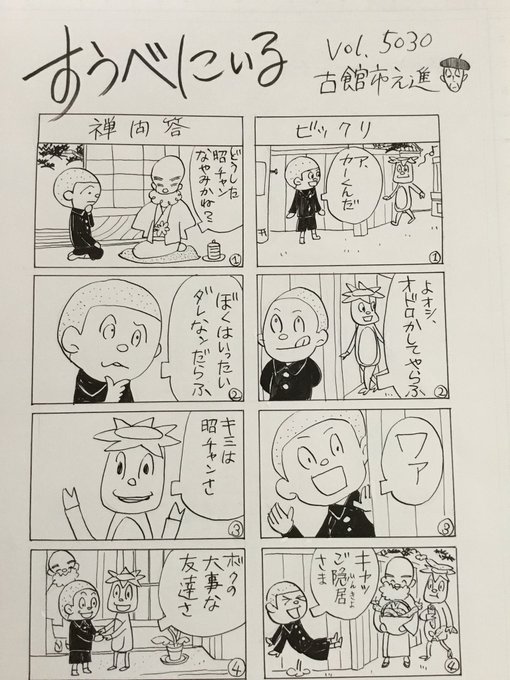 すうべにいる
Vol. 5030
古舘市之進
ビックリ
ア、
カーくんだ
よ
①
よオシ、
オドロかしてやらふ
②
ワァ
③
キャッ
ご隠居
いんきょ
さま
④
禅問答
どうした
昭チャン
なやみかね?
①
ぼくはいったい
ダレなンだらふ
②
キミは
昭チャンさ
③
ボクの
大事な
友達さ
④